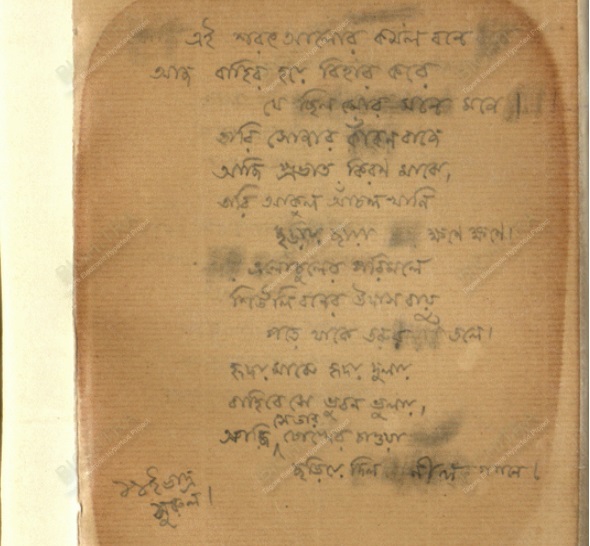 এই শরৎ আলোর কমল বনে
আজ বাহির হয়ে বিহার করে
যে ছিল মোর মনে মনে।
তারি সোনার কাঁকন বাজে
আজি প্রভাত কিরণ মাঝে,
তারি আকুল আঁচল খানি
ছড়ায় ছায়া ক্ষণে ক্ষণে।
এলোচুলের পরিমলে
শিউলি বনের উদাস বায়ু
পড়ে থাকে তরুর তলে।
হৃদয় মাঝে হৃদয় দুলায়
বাহিরে সে ভুবন ভুলায়,
আজি সে তার চোখের চাওয়া
ছড়িয়ে দিল নীল গগনে।
১১ই ভাদ্র
সুরুল।